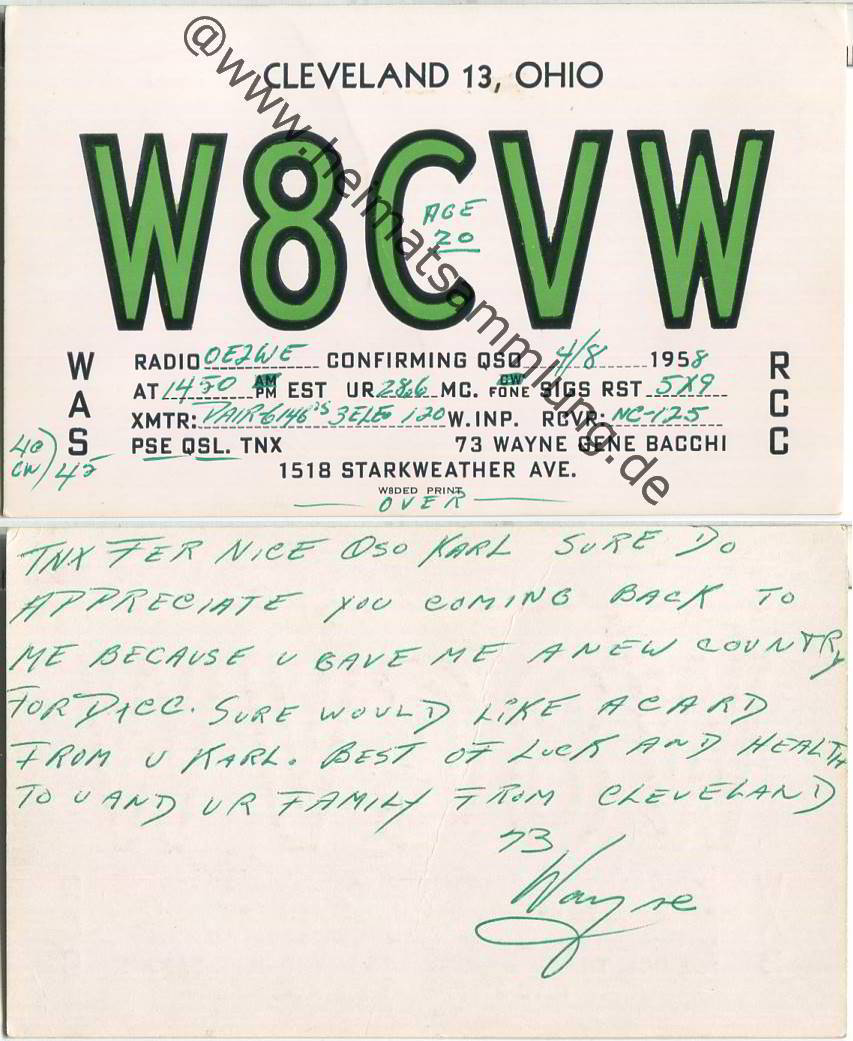 @www.heimatsammlung.de
CLEVELAND 13, OHIO
W8CVW
AGE
20
WAS
RCC
RADIO OE2WE CONFIRMING QSO 4/8 1958
AT 1450 AM PM EST UR 28.6 MC. CW FONE SIGS RST 5X9
XMTR: PAIR 6146'S 3 ELE. 120 W.INP. RCVR: NC-125
PSE QSL. TNX 73 WAYNE GENE BACCHI
1518 STARKWEATHER AVE.
W8DED PRINT
OVER
TNX FER NICE QSO KARL SURE DO
APPRECIATE YOU COMING BACK TO
ME BECAUSE U GAVE ME A NEW COUNTRY
FOR DXCC. SURE WOULD LIKE A CARD
FROM U KARL. BEST OF LUCK AND HEALTH
TO U AND UR FAMILY FROM CLEVELAND
73
Wayne